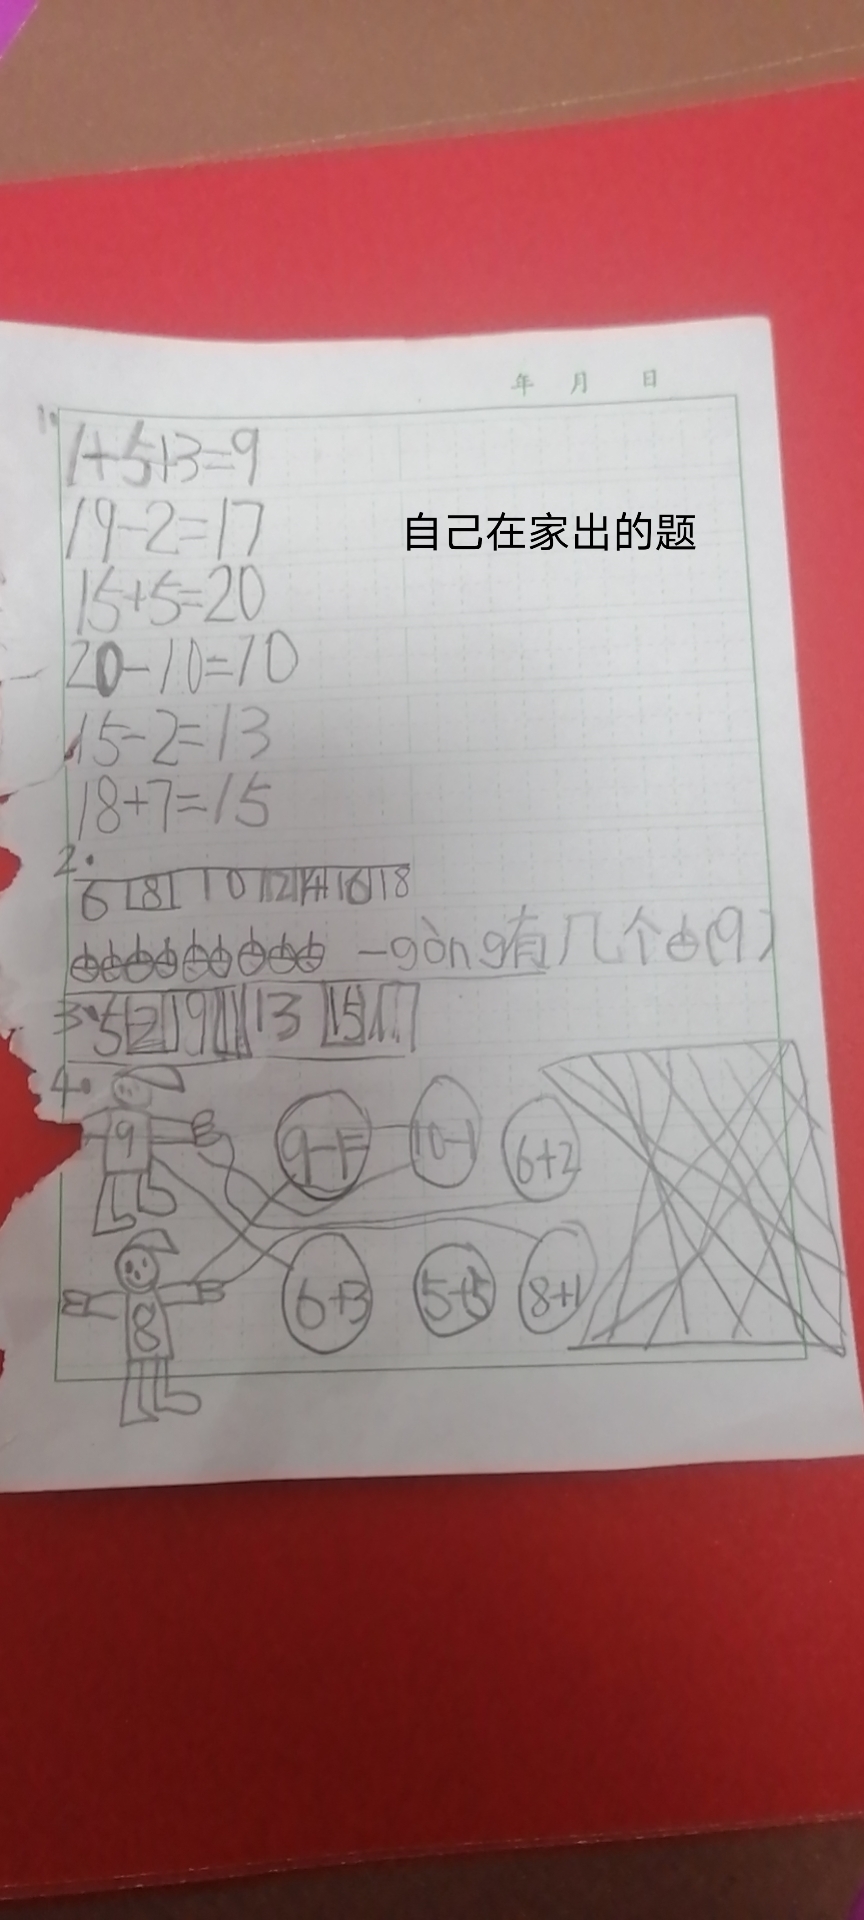 年 月 日
1.
1+5+3=9
19-2=17
自己在家出的题
15+5=20
20-10=10
15-2=13
18+7=15
2.
6 8 10 12 14 16 18
一gòng有几个(9)
3. 5 2 9 11 13 15 17
4.
9 9-1= 10-1 6+2
8 6+3 5+5 8+1